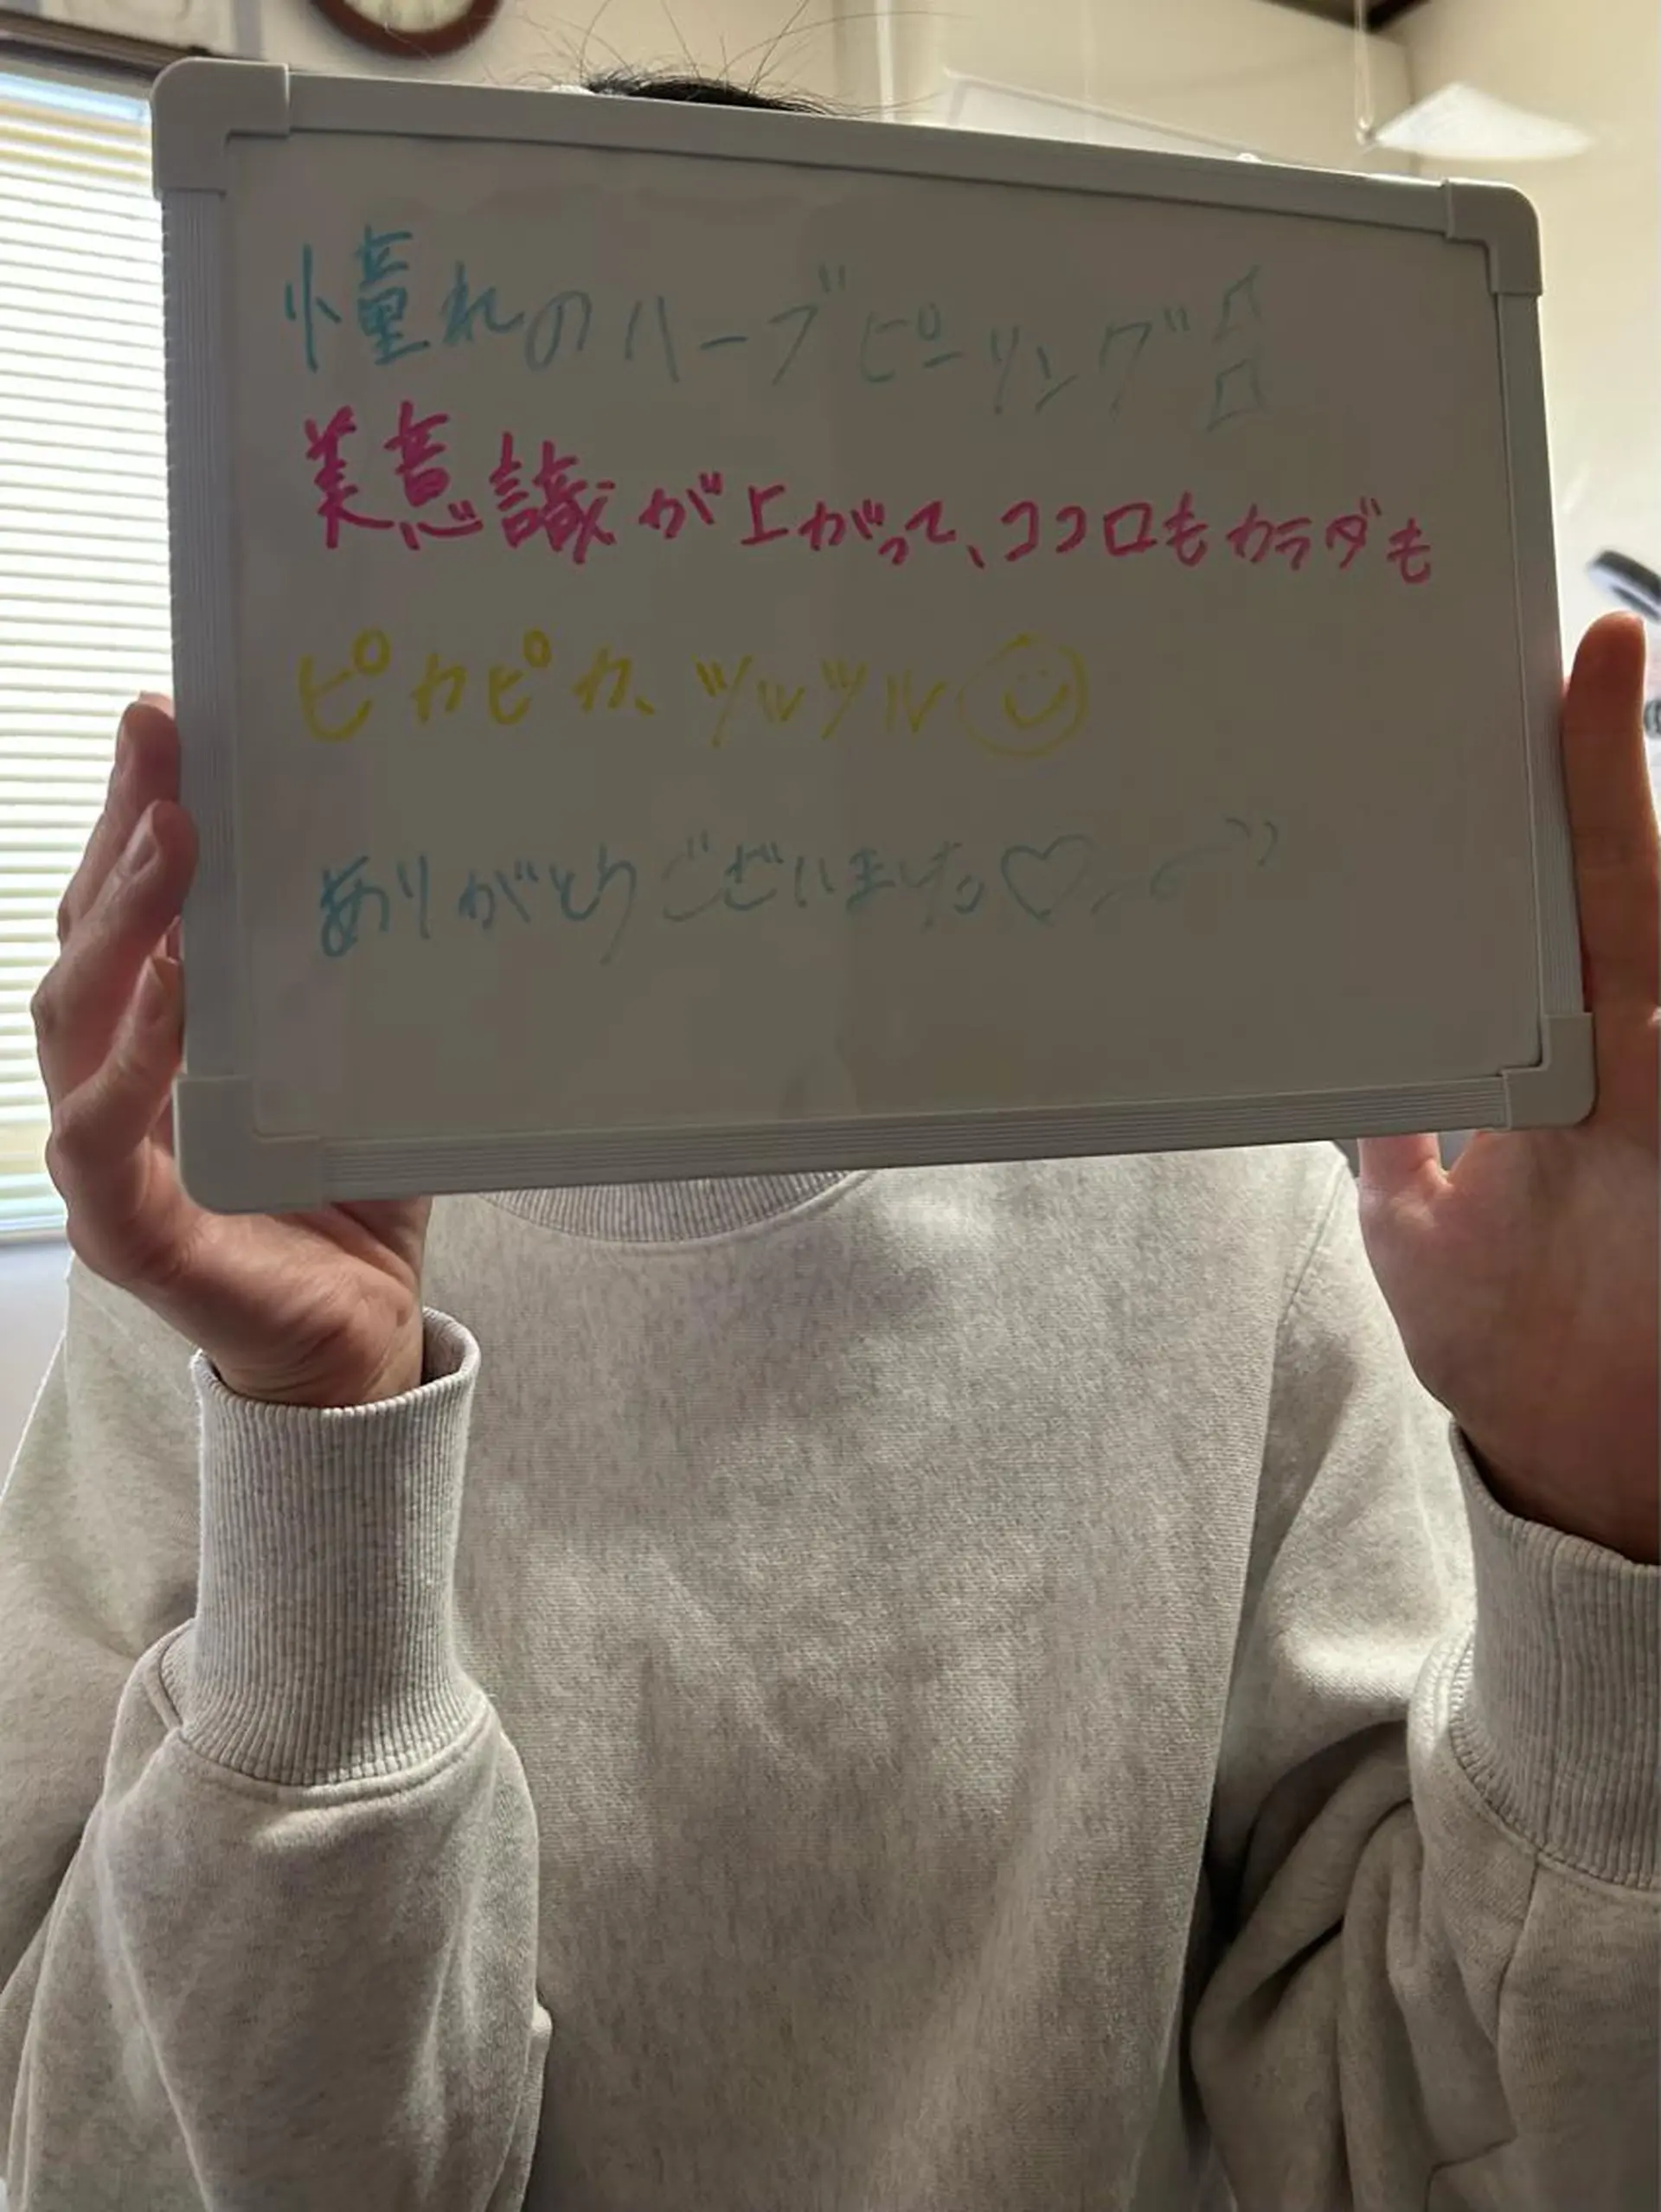 憧れのハーブピーリング♫♫
美意識が上がって、ココロもカラダも
ピカピカ、ツルツル☺
ありがとうございました♡